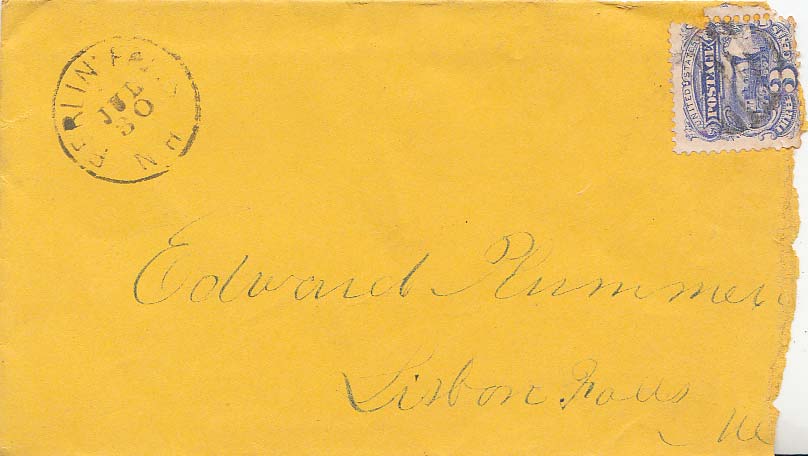 BERLIN FALLS N.H.
JUL
30
UNITED STATES
POSTAGE
3
Edward Plummer
Lisbon Falls
Me